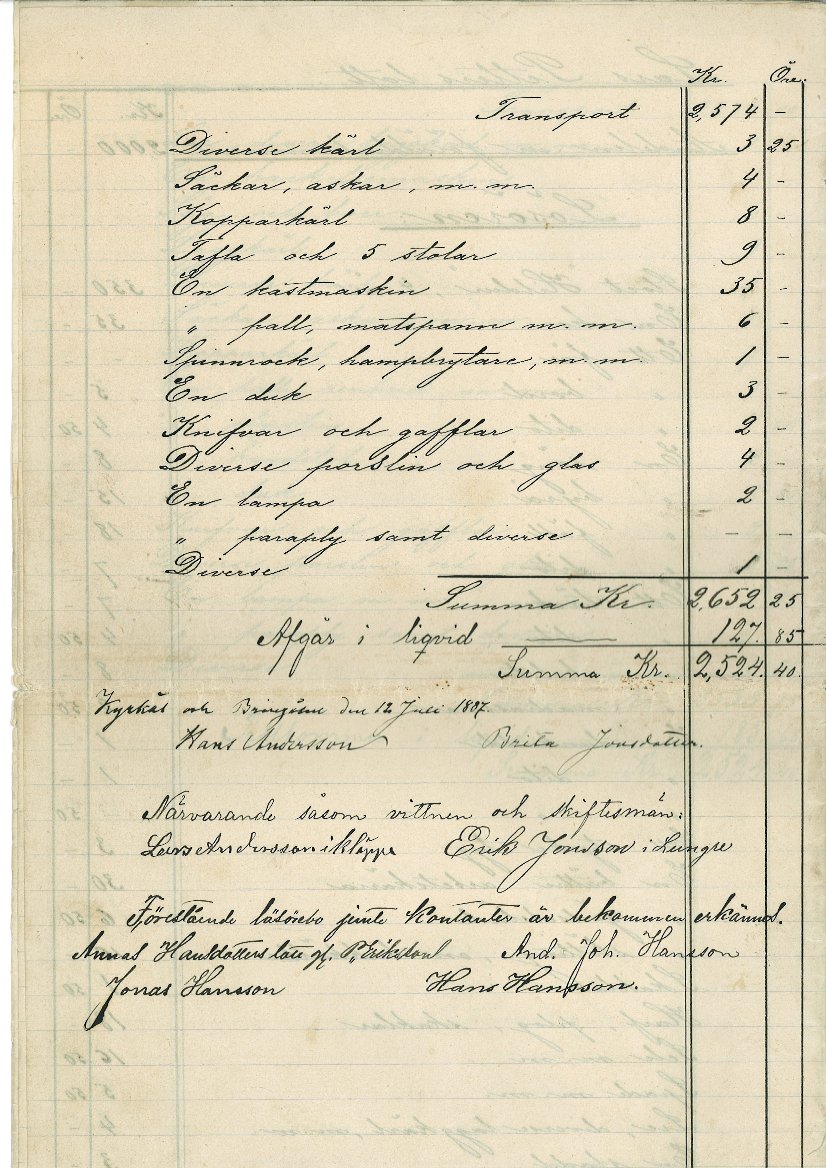 Kr. Öre.
Transport 2,574 -
Diverse kärl 3 25
Säckar, askar, m. m. 4 -
Kopparkärl 8 -
Tafla och 5 stolar 9 -
En kastmaskin 35 -
" pall, matspann m. m. 6 -
Spinnrock, hampbrytare, m. m 1 -
En duk 3 -
Knifvar och gafflar 2 -
Diverse porslin och glas 4 -
En lampa 2 -
" paraply samt diverse - -
Diverse 1 -
Summa Kr. 2,652 25
Afgår i liqvid 127. 85
Summa Kr. 2,524. 40.
Kyrkås och Bringåsen den 12 Juli 1897.
Hans Andersson Brita Jonsdotter.
Närvarande såsom vittnen och skiftesmän:
Lars Andersson i Kläppe Erik Jonsson i Lungre
Förestående lösörebo jemte Kontanter är bekommen erkännes.
Annas Hansdotters gf. P. Erikson And. Joh. Hansson
Jonas Hansson Hans Hansson.